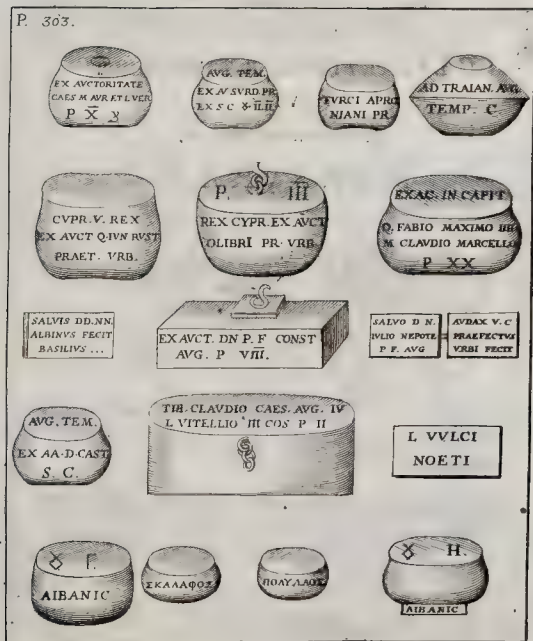 P. 303.
EX AVCTORITATE
CAES M AVR ET L VER
P X
AVG. TEM.
EX N SVRD. PR.
EX S C II.II
TVRCI APRO
NIANI PR.
AD TRAIAN. AVG
TEMP. C
CVPR. V. REX
EX AVCT Q. IVN RVST
PRAET. VRB.
P. III
REX CYPR. EX AVCT
OLIBRI PR. VRB.
EXAC. IN CAPIT
Q. FABIO MAXIMO IIII
M CLAVDIO MARCELLO
P XX
SALVIS DD. NN.
ALBINVS FECIT
BASILIVS ...
EX AVCT. DN P. F CONST
AVG. P VIII.
SALVO D N.
IVLIO NEPOTE
P F. AVG
AVDAX V. C
PRAEFECTVS
VRBI FECIT
AVG. TEM.
EX AA. D. CAST
S. C.
TIB. CLAVDIO CAES. AVG. IV
L VITELLIO III COS P II
L VVLCI
NOETI
Γ.
AIBANIC
ΣΚΑΛΑΦΟΣ
ΠΟΛΥΛΑΟΣ
H.
AIBANIC